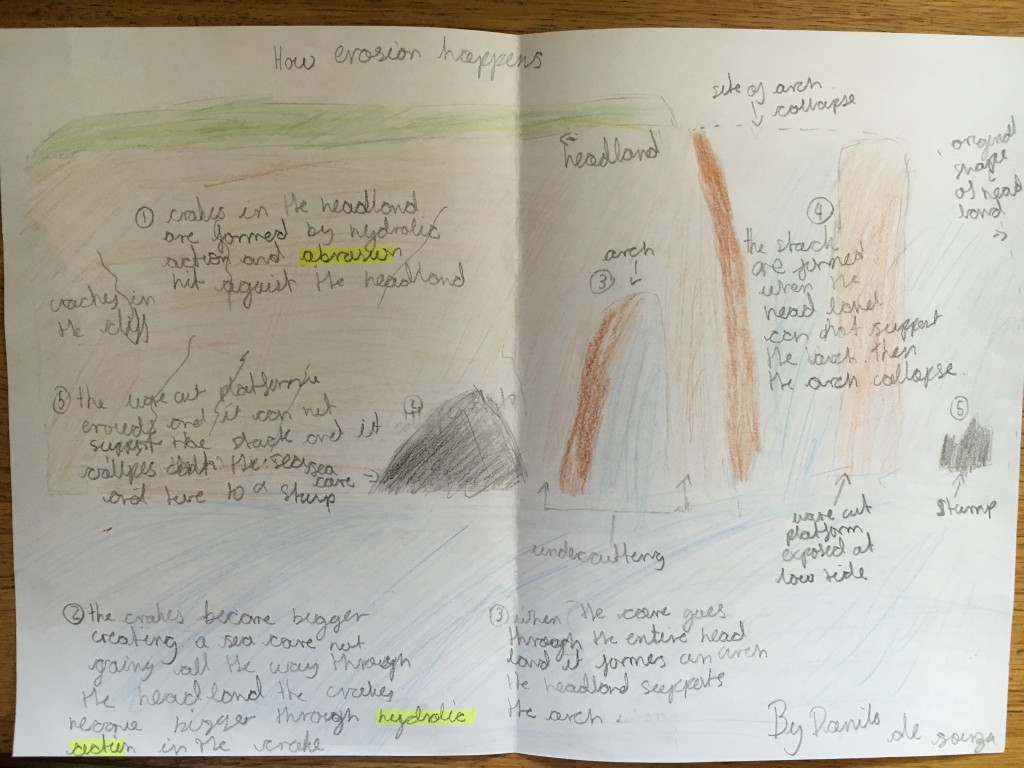 How erosion happens
site of arch
collapse
headland
original
shape
of head
land
① crakes in the headland
are formed by hydrolic
action and abrasion
hit agaist the headland
arch
③
④
the stack
are formed
when the
head land
can not support
the arch then
the arch collapse.
craches in
the cliff
⑤ the wave cut platforme
erouds and it can not
support the stack and it
collipes the sea
and ture to a stump
sea
cave
②
⑤
stump
undercutting
wave cut
platform
exposed at
low tide
② the crakes become bigger
creating a sea cave not
going all the way through
the head land the crakes
become bigger through hydrolic
action in the crake
③ when the cave goes
through the entire head
land it formes an arch
the headland supports
the arch
By Danilo de souza